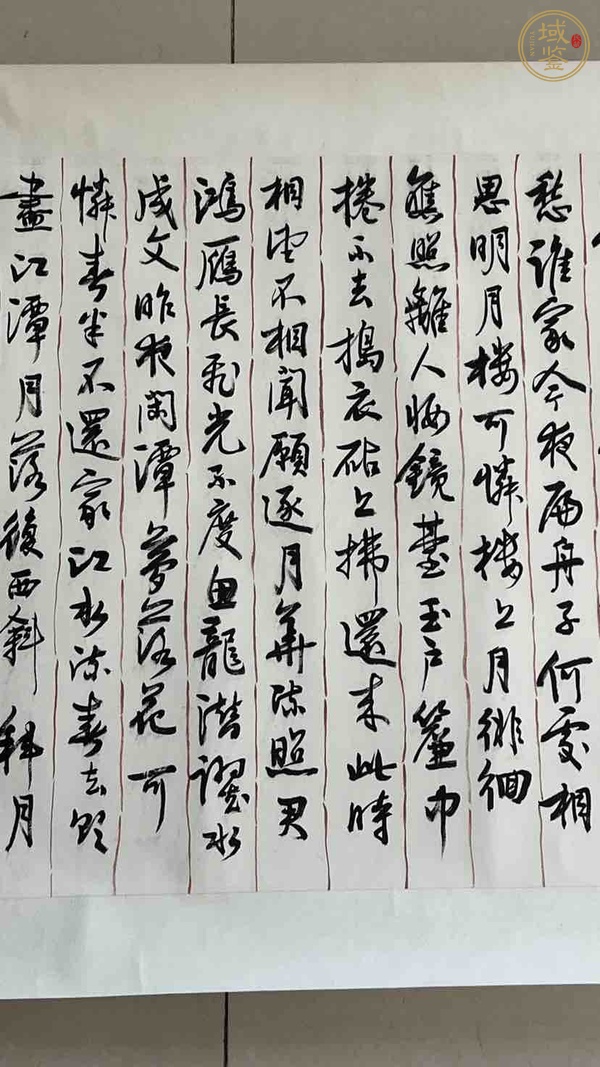 愁誰家今夜扁舟子何處相
思明月樓可憐樓上月徘徊
應照離人妝鏡臺玉戶簾中
捲不去搗衣砧上拂還來此時
相望不相聞願逐月華流照君
鴻雁長飛光不度魚龍潛躍水
成文昨夜閑潭夢落花可
憐春半不還家江水流春去欲
盡江潭月落復西斜斜月
域鉴